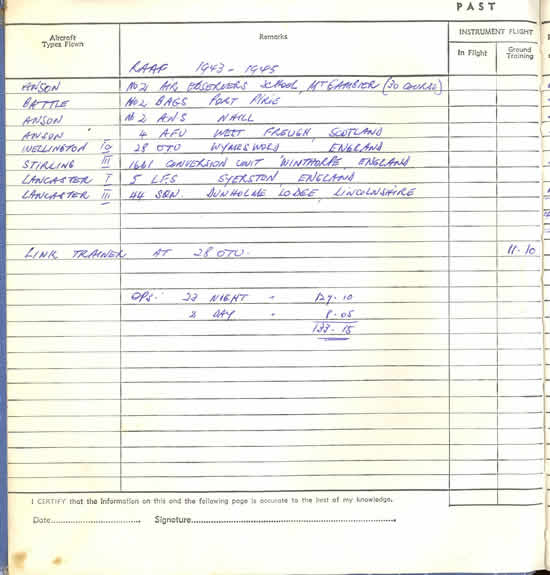 PAST
Aircraft Types Flown
Remarks
INSTRUMENT FLIGHT
In Flight
Ground Training
RAAF 1943 - 1945
ANSON No 2 AIR OBSERVERS SCHOOL, MT GAMBIER (30 COURSE)
BATTLE No 2 BAGS PORT PIRIE
ANSON No 2 ANS NHILL
ANSON 4 AFU WEST FREUGH, SCOTLAND
WELLINGTON 28 OTU WYMESWOLD ENGLAND
STIRLING III 1661 CONVERSION UNIT WINTHORPE ENGLAND
LANCASTER I 5 LFS SYERSTON ENGLAND
LANCASTER III 44 SQN. DUNHOLME LODGE, LINCOLNSHIRE
LINK TRAINER AT 28 OTU. 11.10
OPS: NIGHT - 127.10
DAY -
I CERTIFY that the information on this and the following page is accurate to the best of my knowledge.
Date.................... Signature....................